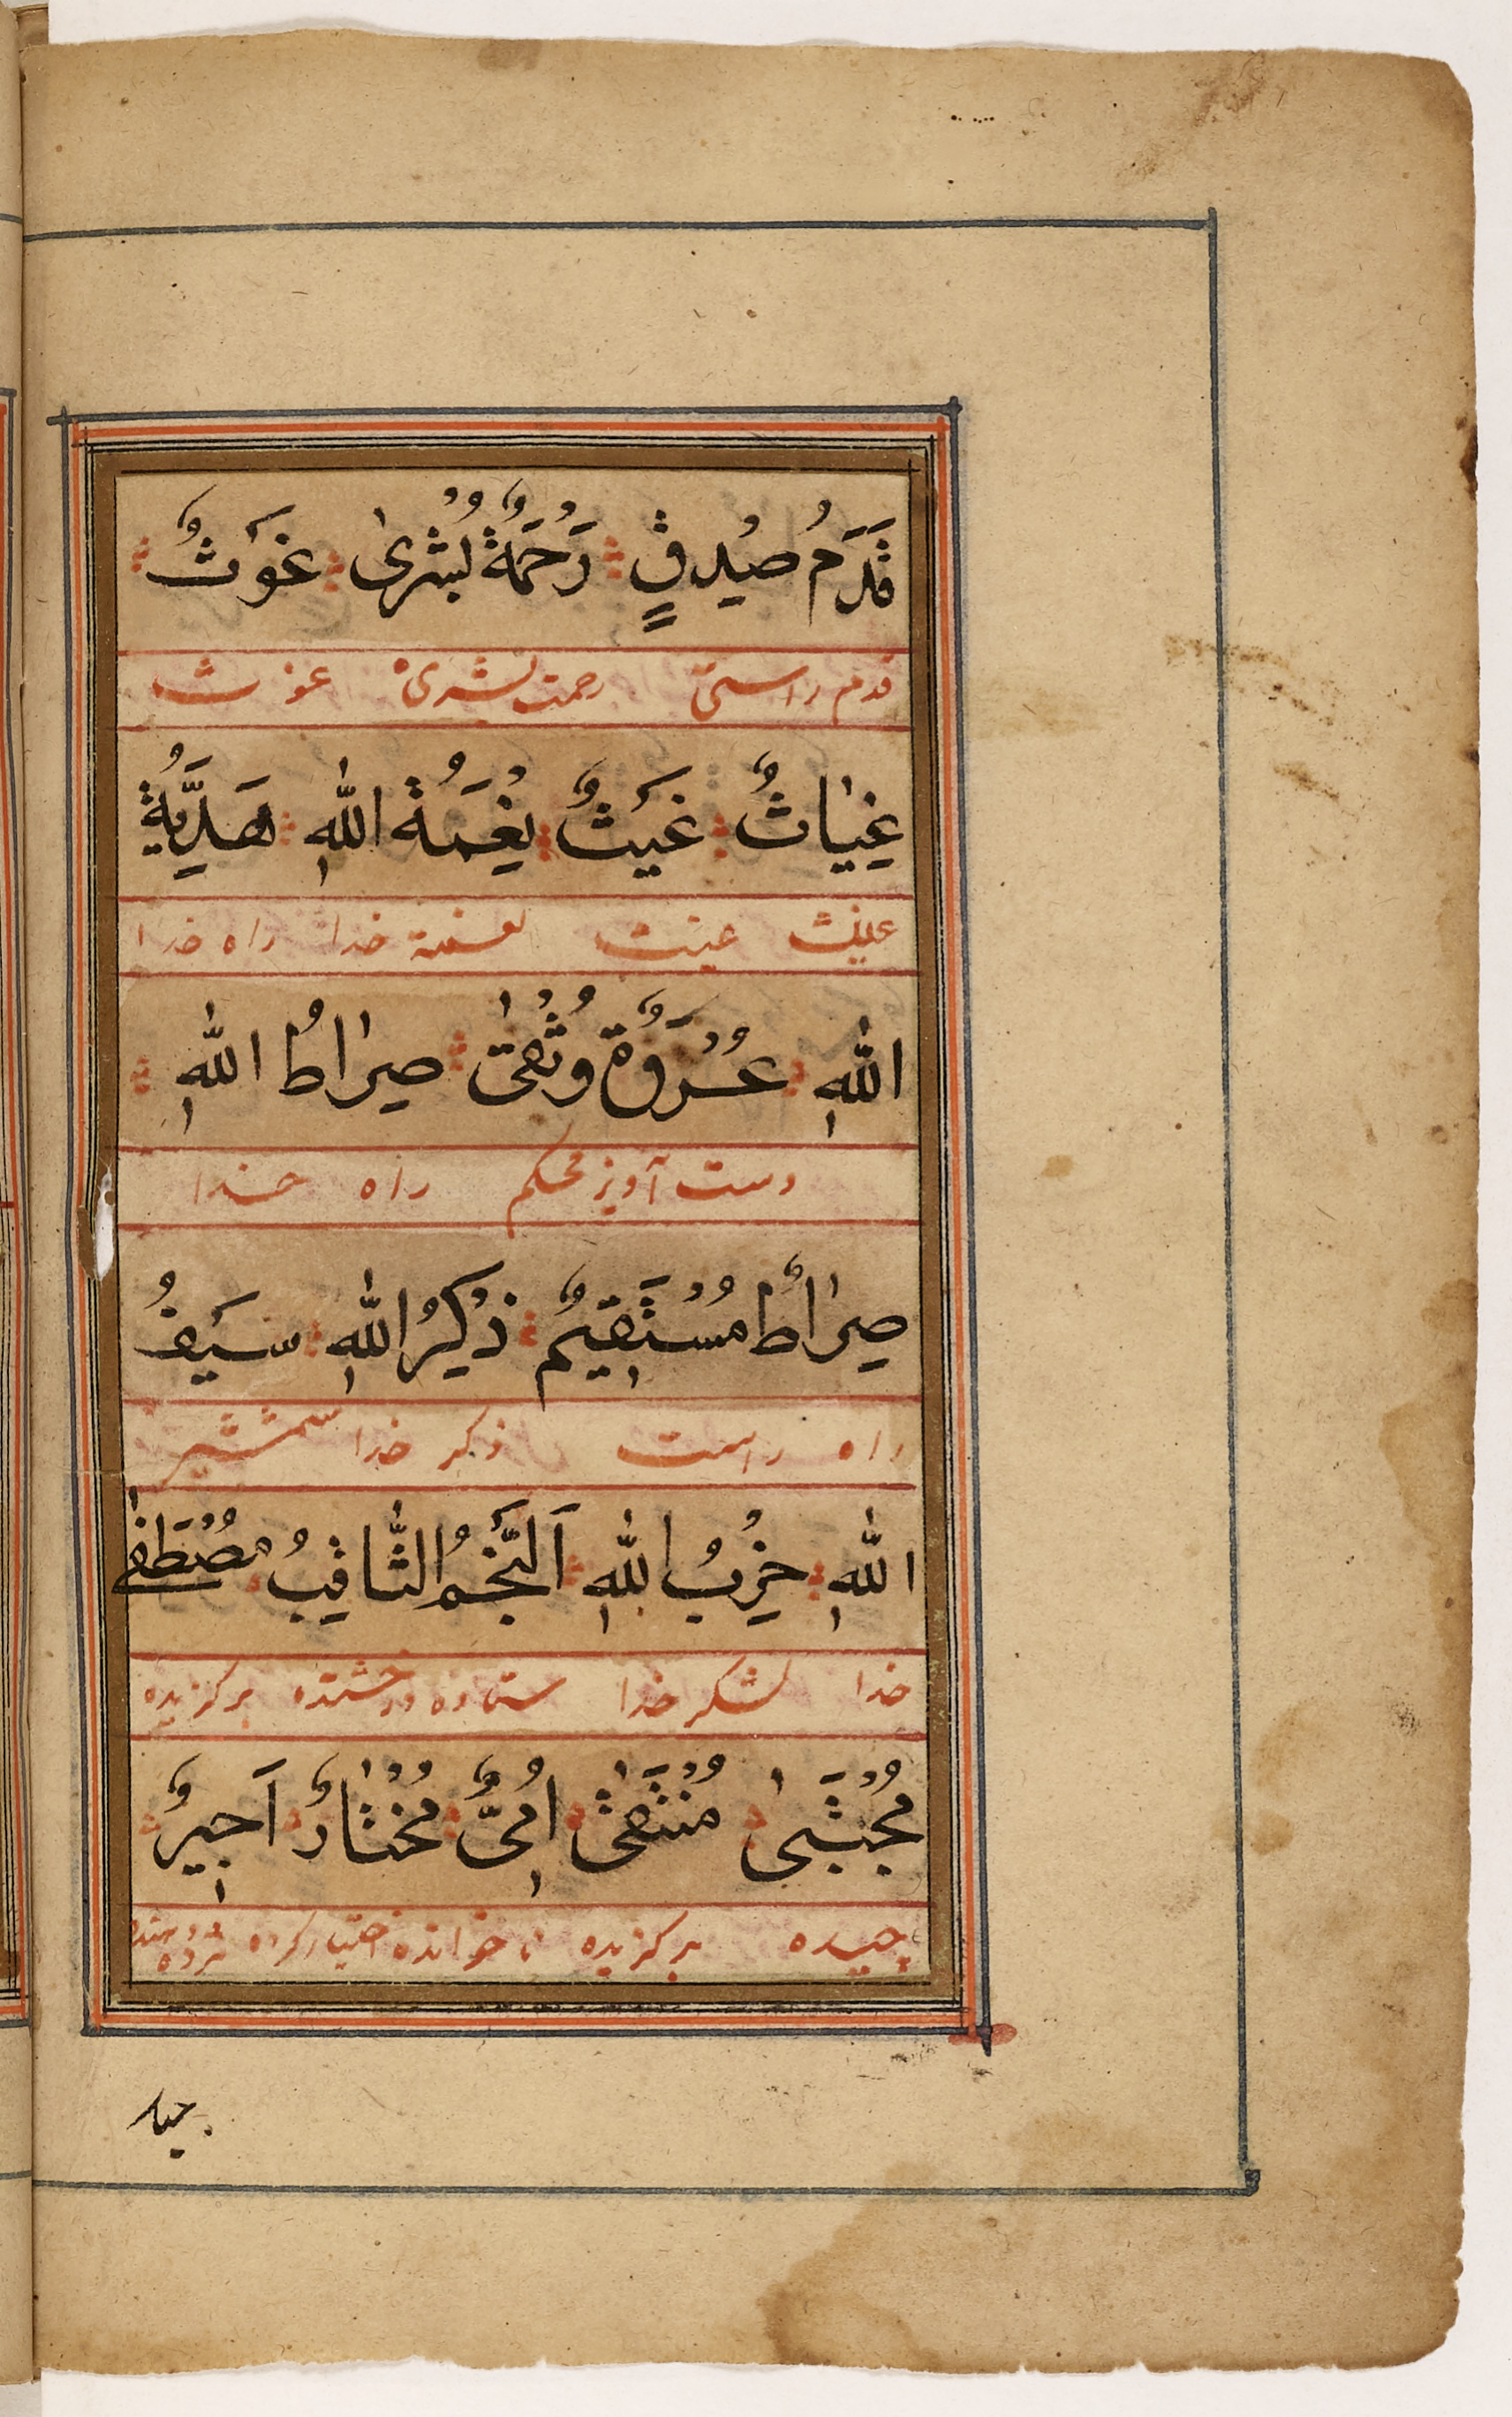 قَدَمُ صِدْقٍ رَحْمَةٌ بُشْرىٰ غَوَثٌ
قدم راستی رحمت بشری عوث
غِيٰاثٌ غَيَثٌ نِعْمَةُ اللّٰهِ هَدِيَّةُ
عیت نعمته خدا راه خدا
اللّٰهِ عُرْوَةٌ وُثْقىٰ صِرٰاطُ اللّٰهِ
دست آویز محکم راه خدا
صِرٰاطٌ مُسْتَقِيمٌ ذِكْرُ اللّٰهِ سَيَفُ
راه راست ذکر خدا شمشیر
اللّٰهِ حِزْبُ اللّٰهِ اَلنَّجْمُ الثّٰاقِبُ مُصْطَفىٰ
خدا لشکر خدا ستاره درخشنده برکزیده
مُجْتَبىٰ مُنْتَقىٰ اُمِّىٌّ مُخْتٰارٌ اَجِيرٌ
چیده برکزیده نا خوانده اختیار کرده
جبار